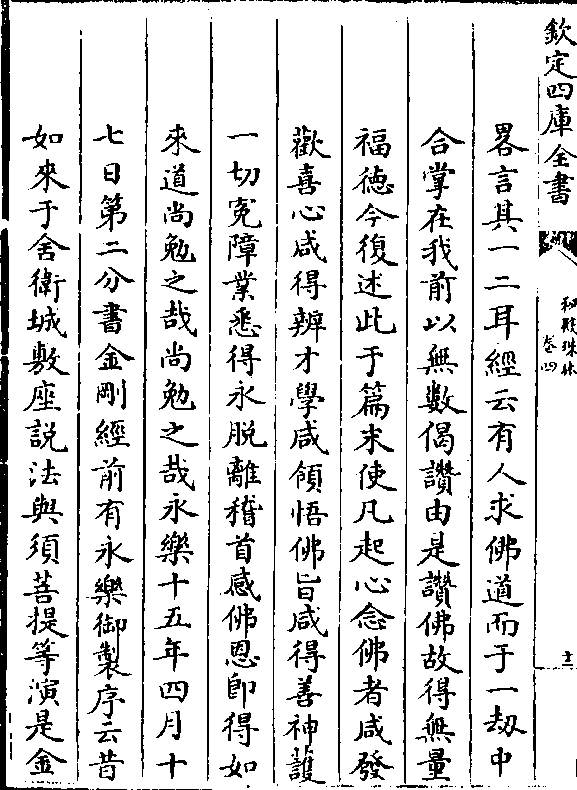 欽定四庫全書
秘殿珠林
卷四
畧言其一二耳經云有人求佛道而于一劫中
合掌在我前以無數偈讚由是讚佛故得無量
福徳今復述此于篇末使凡起心念佛者咸發
歡喜心咸得辨才學咸領悟佛旨咸得善神䕶
一切寃障業悉得永脱離稽首感佛恩即得如
來道尚勉之哉尚勉之哉永樂十五年四月十
七日第二分書金剛經前有永樂御製序云昔
如來于舍衛城敷座説法與須菩提等演是金